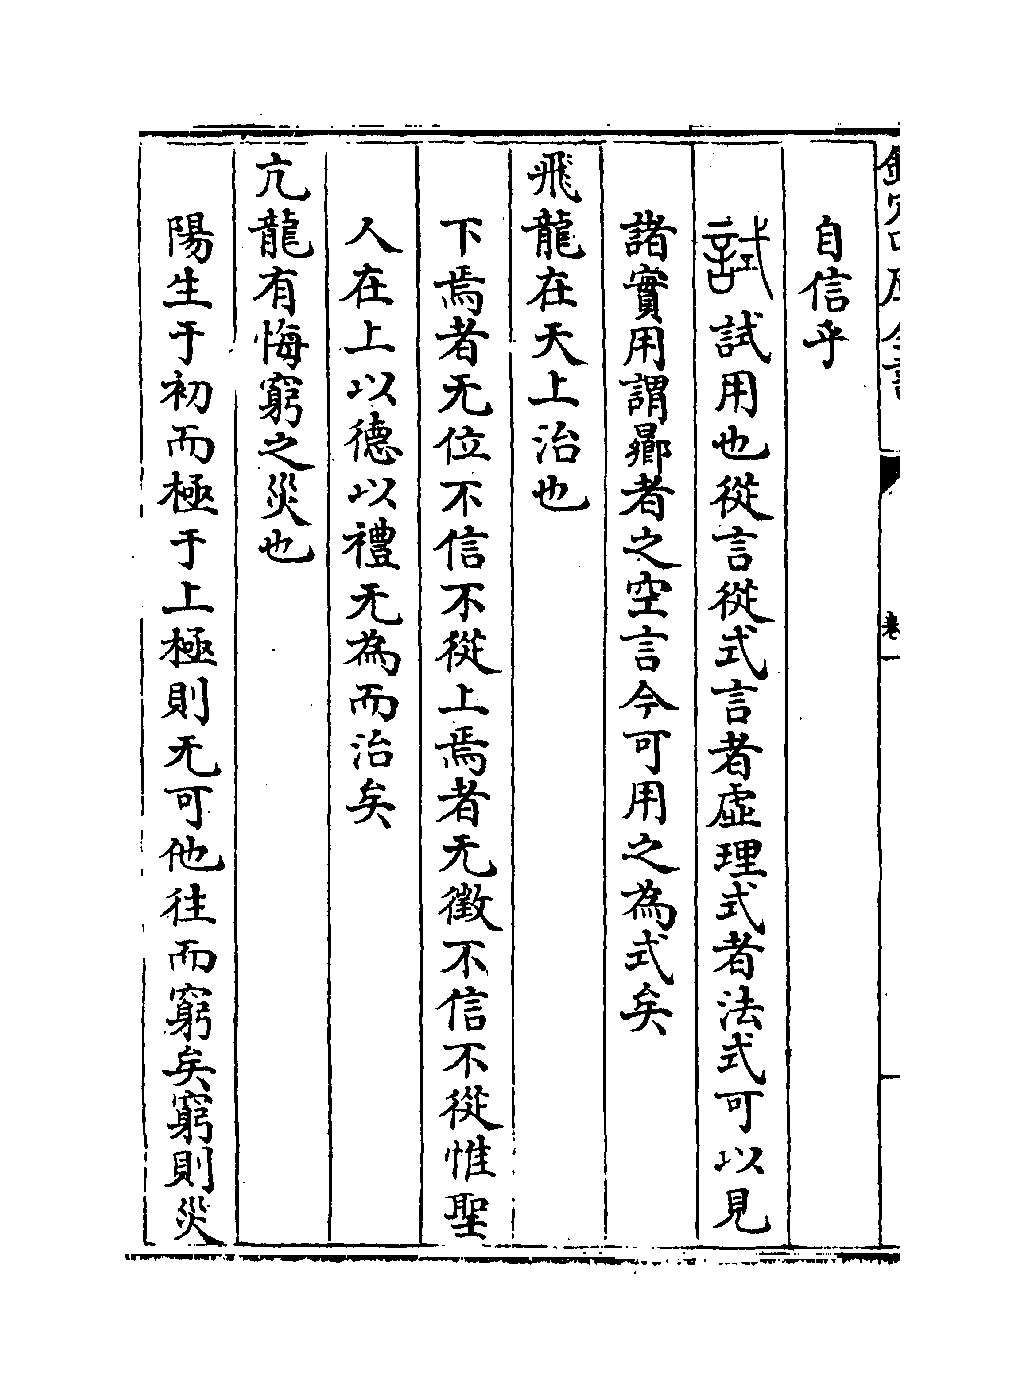 自信乎
試試用也從言從式言者虛理式者法式可以見
諸實用謂曏者之空言今可用之為式矣
飛龍在天上治也
下焉者无位不信不從上焉者无徵不信不從惟聖
人在上以德以禮无為而治矣
亢龍有悔窮之災也
陽生于初而極于上極則无可他往而窮矣窮則災